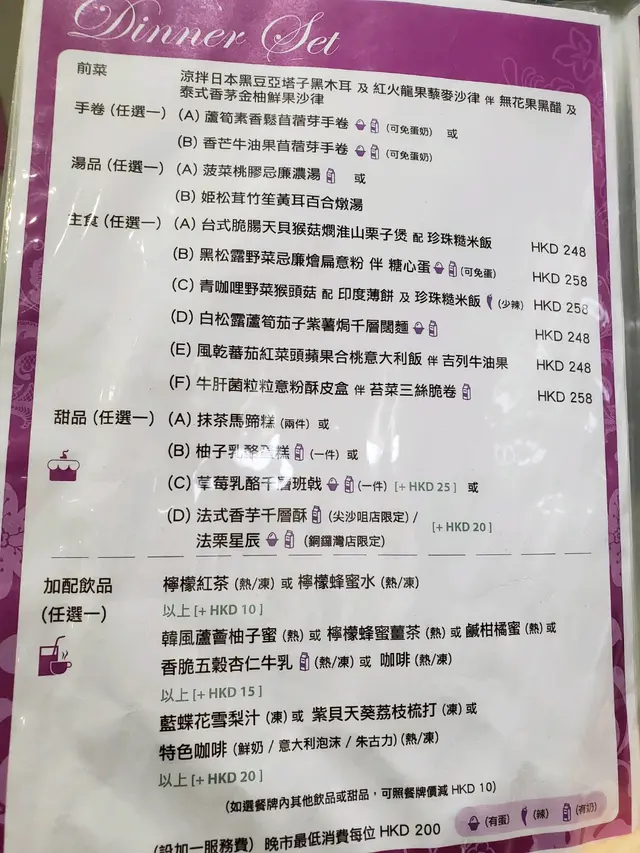 Dinner Set
前菜 涼拌日本黑豆亞塔子黑木耳 及 紅火龍果藜麥沙律 伴 無花果黑醋 及
泰式香茅金柚鮮果沙律
手卷 (任選一) (A) 蘆筍素香鬆苜蓿芽手卷 (可免蛋奶) 或
(B) 香芒牛油果苜蓿芽手卷 (可免蛋奶)
湯品 (任選一) (A) 菠菜桃膠忌廉濃湯 或
(B) 姬松茸竹笙黃耳百合燉湯
主食 (任選一) (A) 台式脆腸天貝猴菇燜淮山栗子煲 配 珍珠糙米飯 HKD 248
(B) 黑松露野菜忌廉燴扁意粉 伴 糖心蛋 (可免蛋) HKD 258
(C) 青咖哩野菜猴頭菇 配 印度薄餅 及 珍珠糙米飯 (少辣) HKD 258
(D) 白松露蘆筍茄子紫薯焗千層闊麵 HKD 248
(E) 風乾蕃茄紅菜頭蘋果合桃意大利飯 伴 吉列牛油果 HKD 248
(F) 牛肝菌粒粒意粉酥皮盒 伴 苔菜三絲脆卷 HKD 258
甜品 (任選一) (A) 抹茶馬蹄糕 (兩件) 或
(B) 柚子乳酪蛋糕 (一件) 或
(C) 草莓乳酪千層班戟 (一件) [+ HKD 25] 或
(D) 法式香芋千層酥 (尖沙咀店限定) / [+ HKD 20]
法栗星辰 (銅鑼灣店限定)
加配飲品 檸檬紅茶 (熱/凍) 或 檸檬蜂蜜水 (熱/凍)
(任選一) 以上 [+ HKD 10]
韓風蘆薈柚子蜜 (熱) 或 檸檬蜂蜜薑茶 (熱) 或 鹹柑橘蜜 (熱) 或
香脆五穀杏仁牛乳 (熱/凍) 或 咖啡 (熱/凍)
以上 [+ HKD 15]
藍蝶花雪梨汁 (凍) 或 紫貝天葵荔枝梳打 (凍) 或
特色咖啡 (鮮奶 / 意大利泡沫 / 朱古力) (熱/凍)
以上 [+ HKD 20]
(如選餐牌內其他飲品或甜品，可照餐牌價減 HKD 10)
(有蛋) (辣) (有奶)
(設加一服務費) 晚市最低消費每位 HKD 200